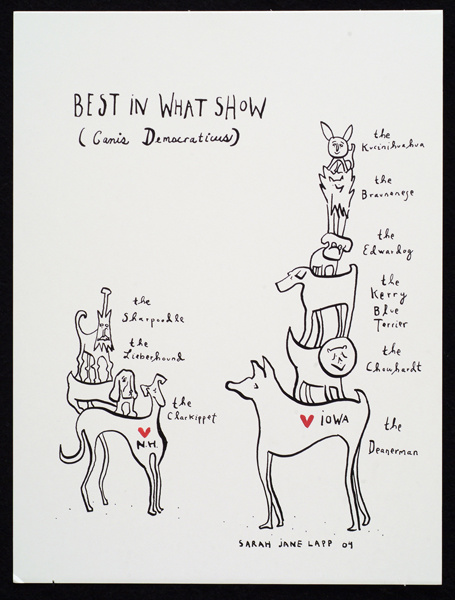 BEST IN WHAT SHOW
(Canis Democraticus)
the
Kucinihuahua
the
Braunonese
the
Edwardog
the
Kerry
Blue
Terrier
the
Chowhardt
the
Deanerman
♥ IOWA
the
Sharpoodle
the
Lieberhound
the
Clarkippet
♥
N.H.
SARAH JANE LAPP 04